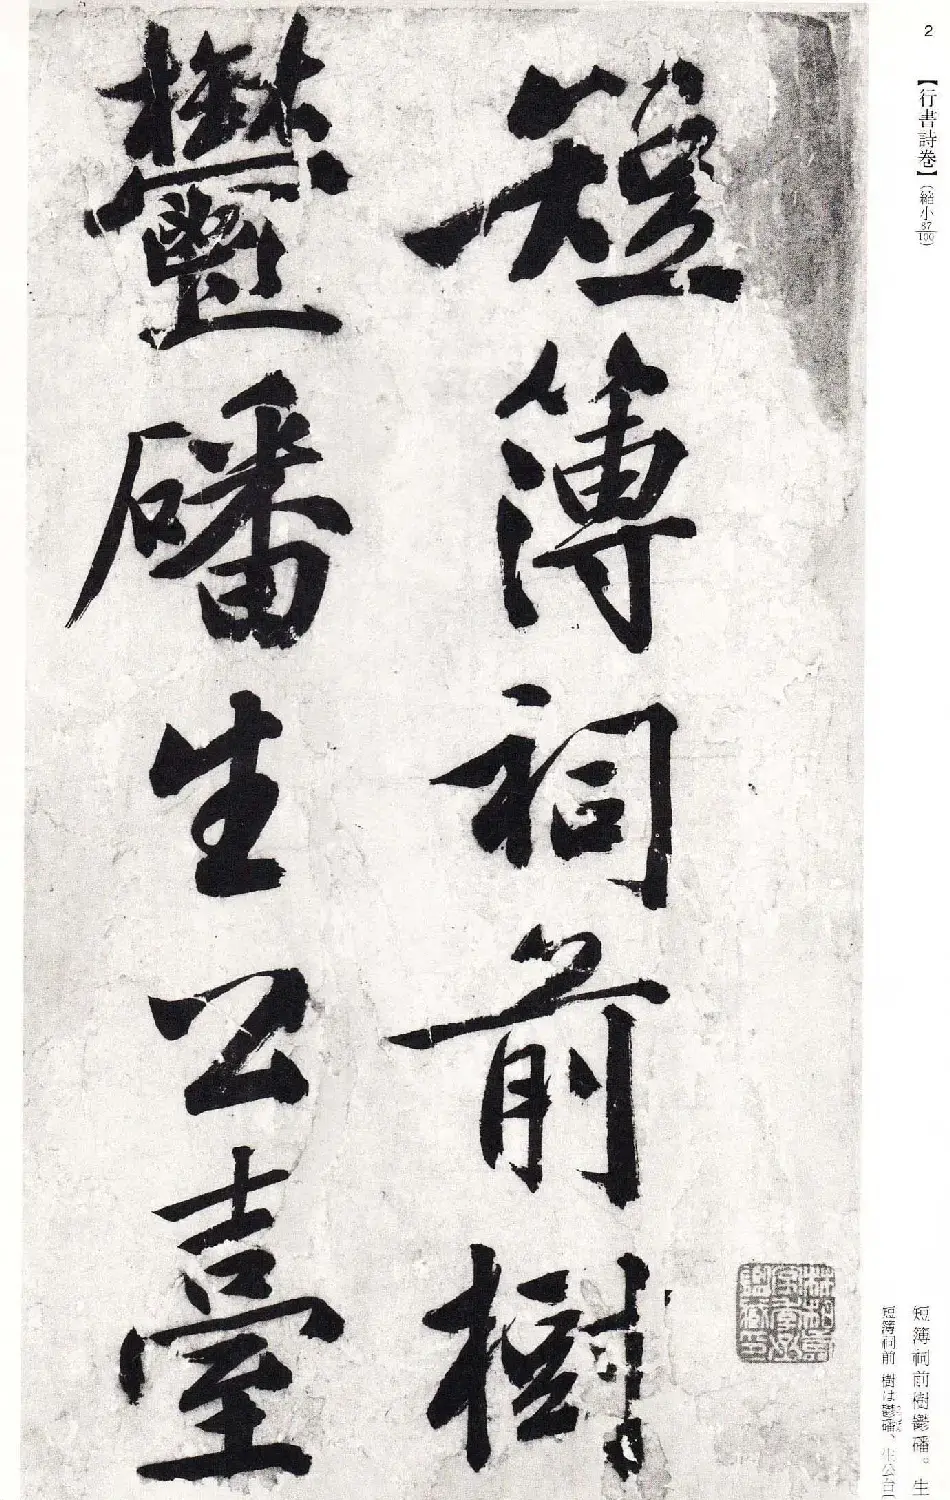 2
【行書詩卷】(縮小87/100)
短簿祠前樹
鬱磻生公臺
短簿祠前樹鬱磻。生
短簿祠前 樹は鬱磻、生公台